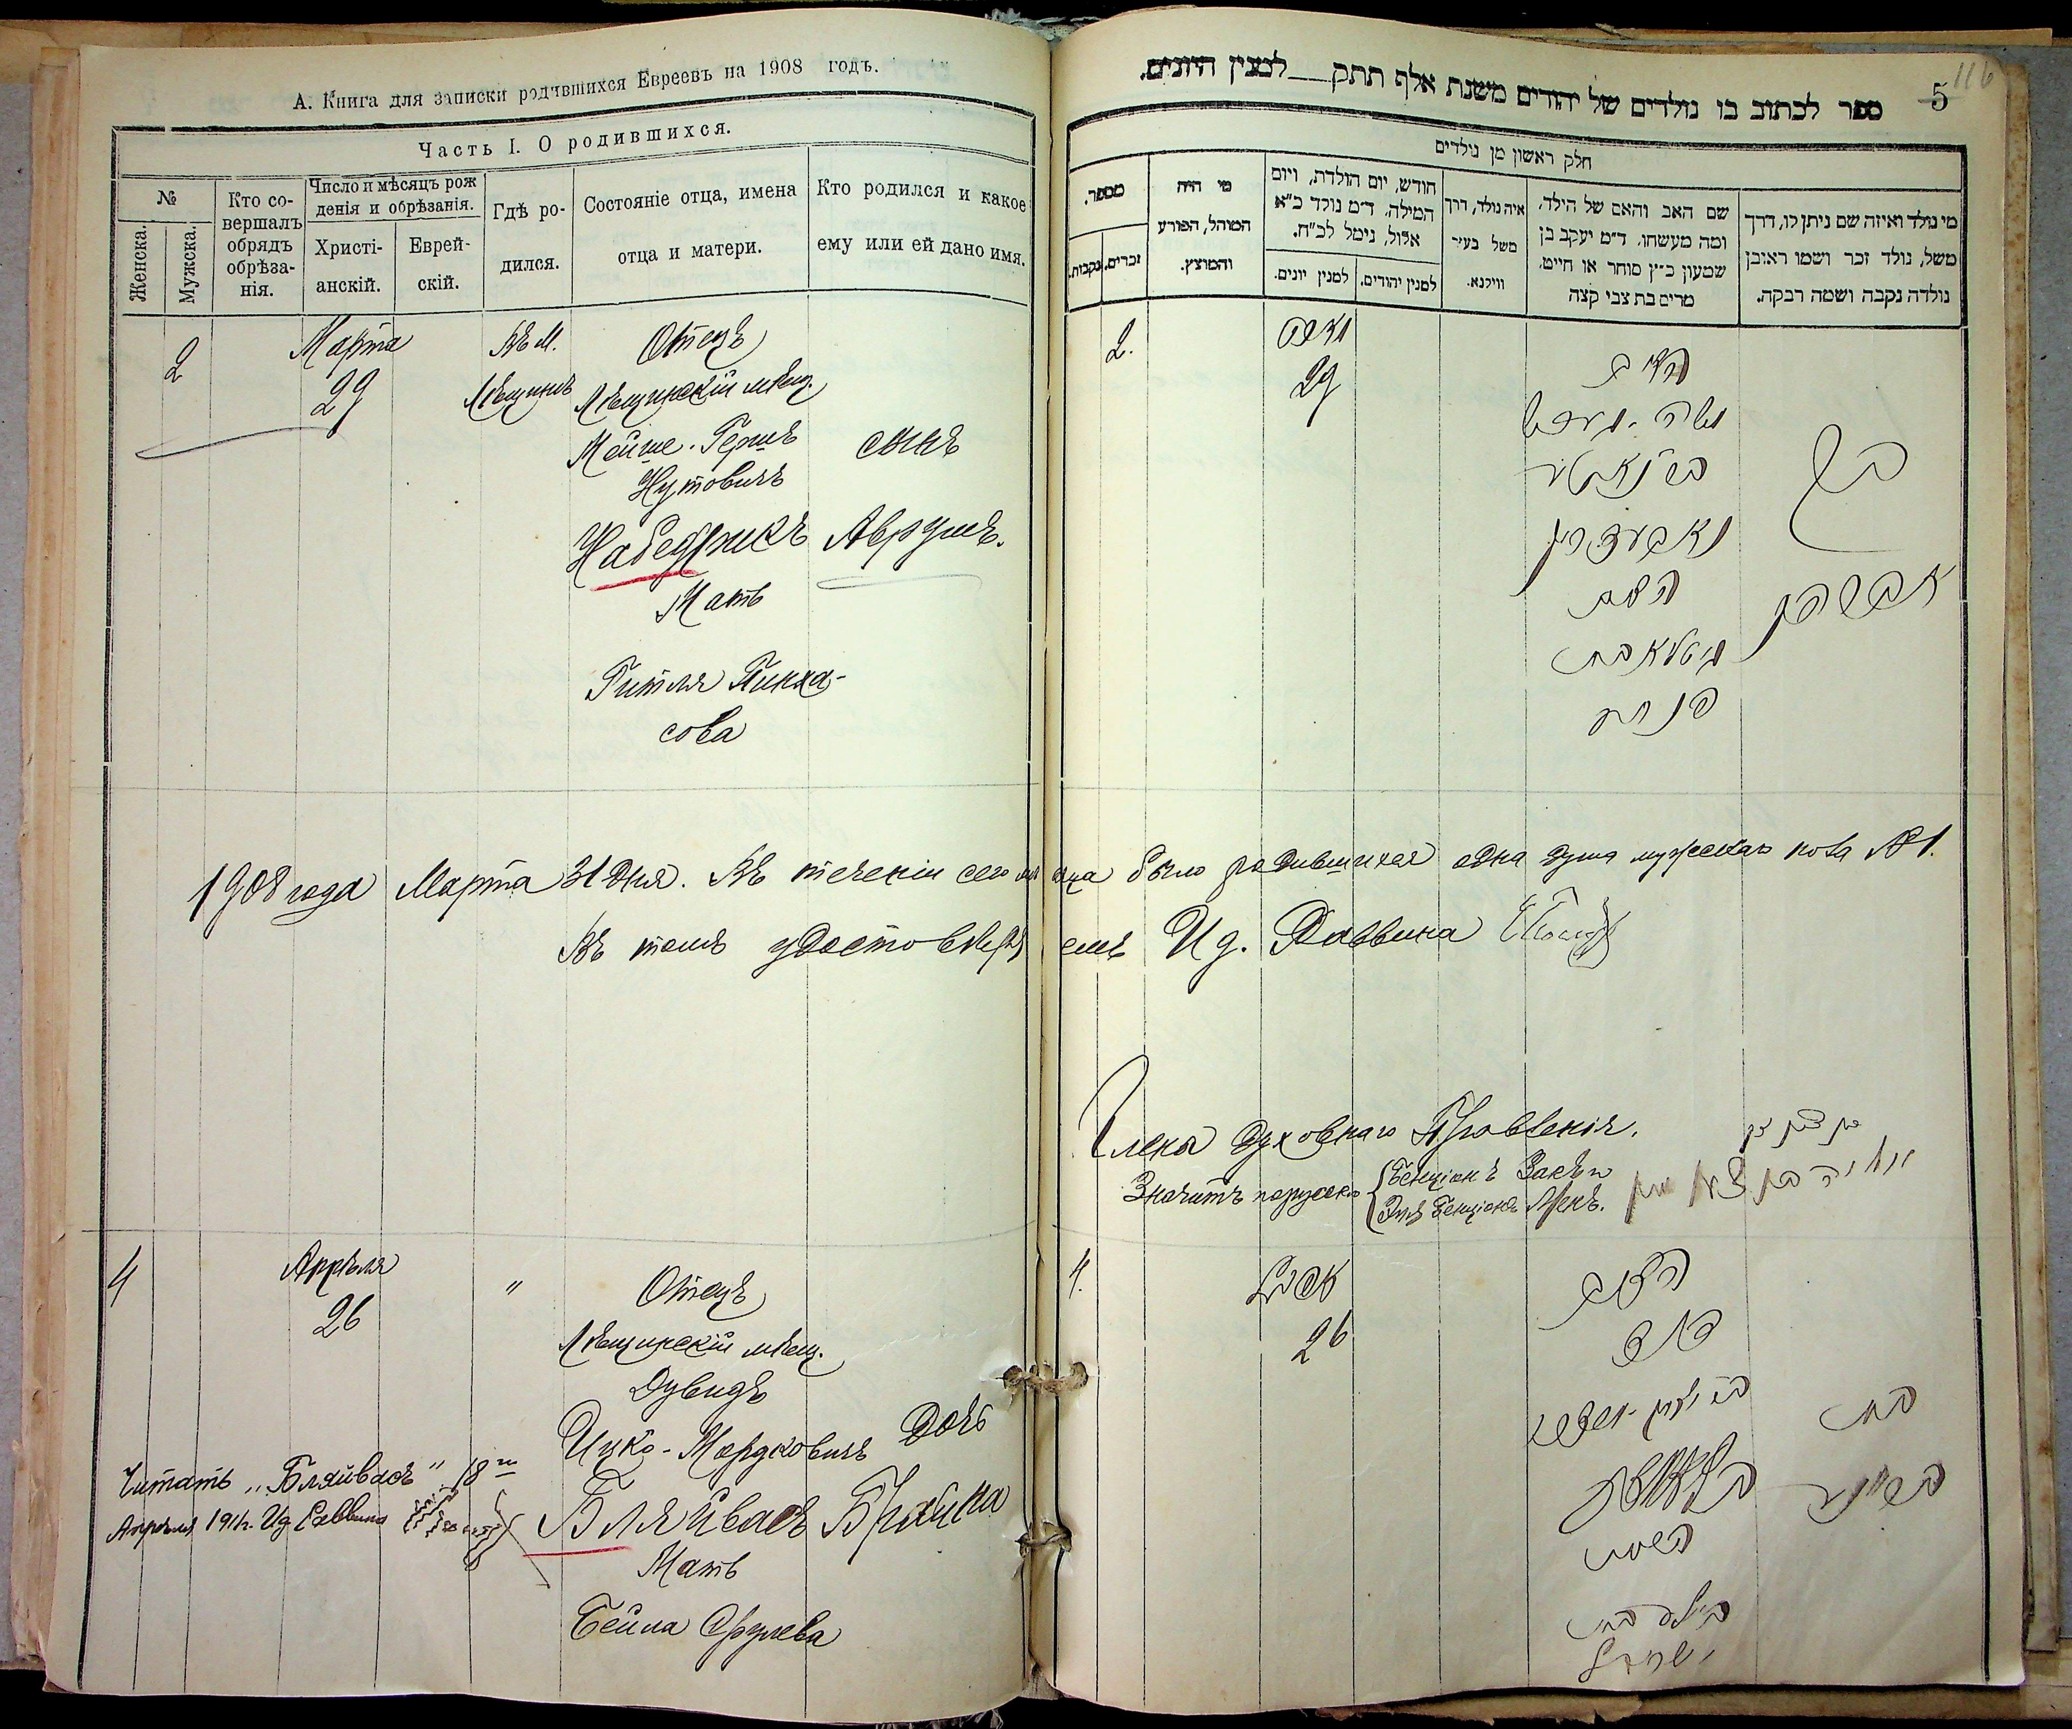 А. Книга для записки родившихся Евреевъ на 1908 годъ.
Часть I. О родившихся.
№
Женска.
Мужска.
Кто со-
вершалъ
обрядъ
обрѣза-
нія.
Число и мѣсяцъ рож
денія и обрѣзанія.
Христі-
анскій.
Еврей-
скій.
Гдѣ ро-
дился.
Состояніе отца, имена
отца и матери.
Кто родился и какое
ему или ей дано имя.
2
Марта
29
Въ м.
Лѣщинъ
Отецъ
Лѣщинскій мѣщ.
Мойше-Гершъ
Нутовичъ
Набедрикъ
Мать
Гитля Пинха-
сова
сынъ
Аврумъ.
1908 года Марта 31 дня. Въ теченіи сего мѣсяца было родившихся одна душа мужскаго пола № 1.
Въ томъ удостовѣряемъ Ид. Раввина
Члена Духовнаго Правленія.
Значитъ порусски
Бенціонъ
4
Апрѣля
26
"
Отецъ
Лѣщинскій мѣщ.
Дувидъ
Ицко-Мордковичъ
Бляйвасъ
Мать
Бейла Срулева
Дочь
Брайна
Читать „Бляйвасъ" 18 го
Апрѣля 191 г. Ид Раввина
5
116
ספר לכתוב בו נולדים של יהודים משנת אלף תתק למנין היונים.
חלק ראשון מן נולדים
מספר.
נקבות.
זכרים.
מי היה
המוהל, הפורע
והמוצץ.
חודש, יום הולדת, ויום
המילה. ד״מ נולד כ״א
אלול, נימל לכ״ח.
למנין יונים.
למנין יהודים.
איה נולד, דרך
משל בעיר
ווילנא.
שם האב והאם של הילד,
ומה מעשהו. ד״מ יעקב בן
שמעון כ״ץ סוחר או חייט,
מרים בת צבי קצה
מי נולד ואיזה שם ניתן לו, דרך
משל, נולד זכר ושמו ראובן
נולדה נקבה ושמה רבקה.
2.
מארט
29
האב
משה-הערש
האם
גיטלא בת
פנחס
בן
אברהם
4.
אפריל
26
האב
דוד
האם
ביילא בת
ישראל
בת
בריינע